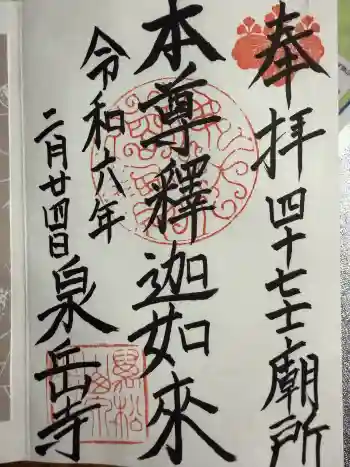 奉拝四十七士廟所
本尊釋迦如來
令和六年
二月廿四日
泉岳寺